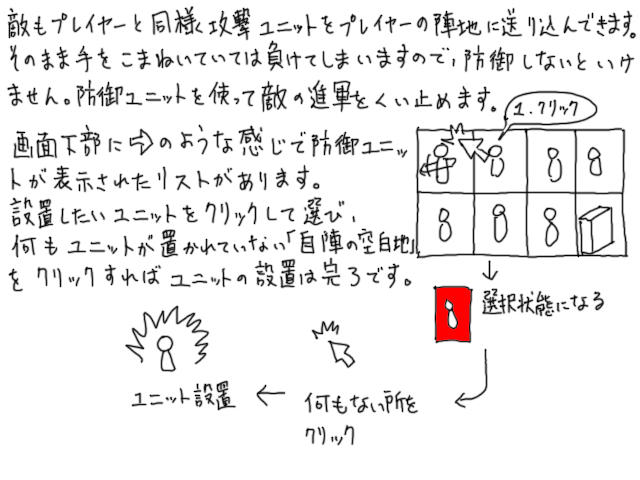 敵もプレイヤーと同様く攻撃ユニットをプレイヤーの陣地に送り込んできます。
そのまま手をこまねいていては負けてしまいますので、防御しないといけ
ません。防御ユニットを使って敵の進軍をくい止めます。
1.クリック
画面下部に⇨のような感じで防御ユニッ
トが表示されたリストがあります。
設置したいユニットをクリックして選び、
何もユニットが置かれていない「自陣の空白地」
をクリックすればユニットの設置は完了です。
選択状態になる
ユニット設置
←
何もない所を
クリック